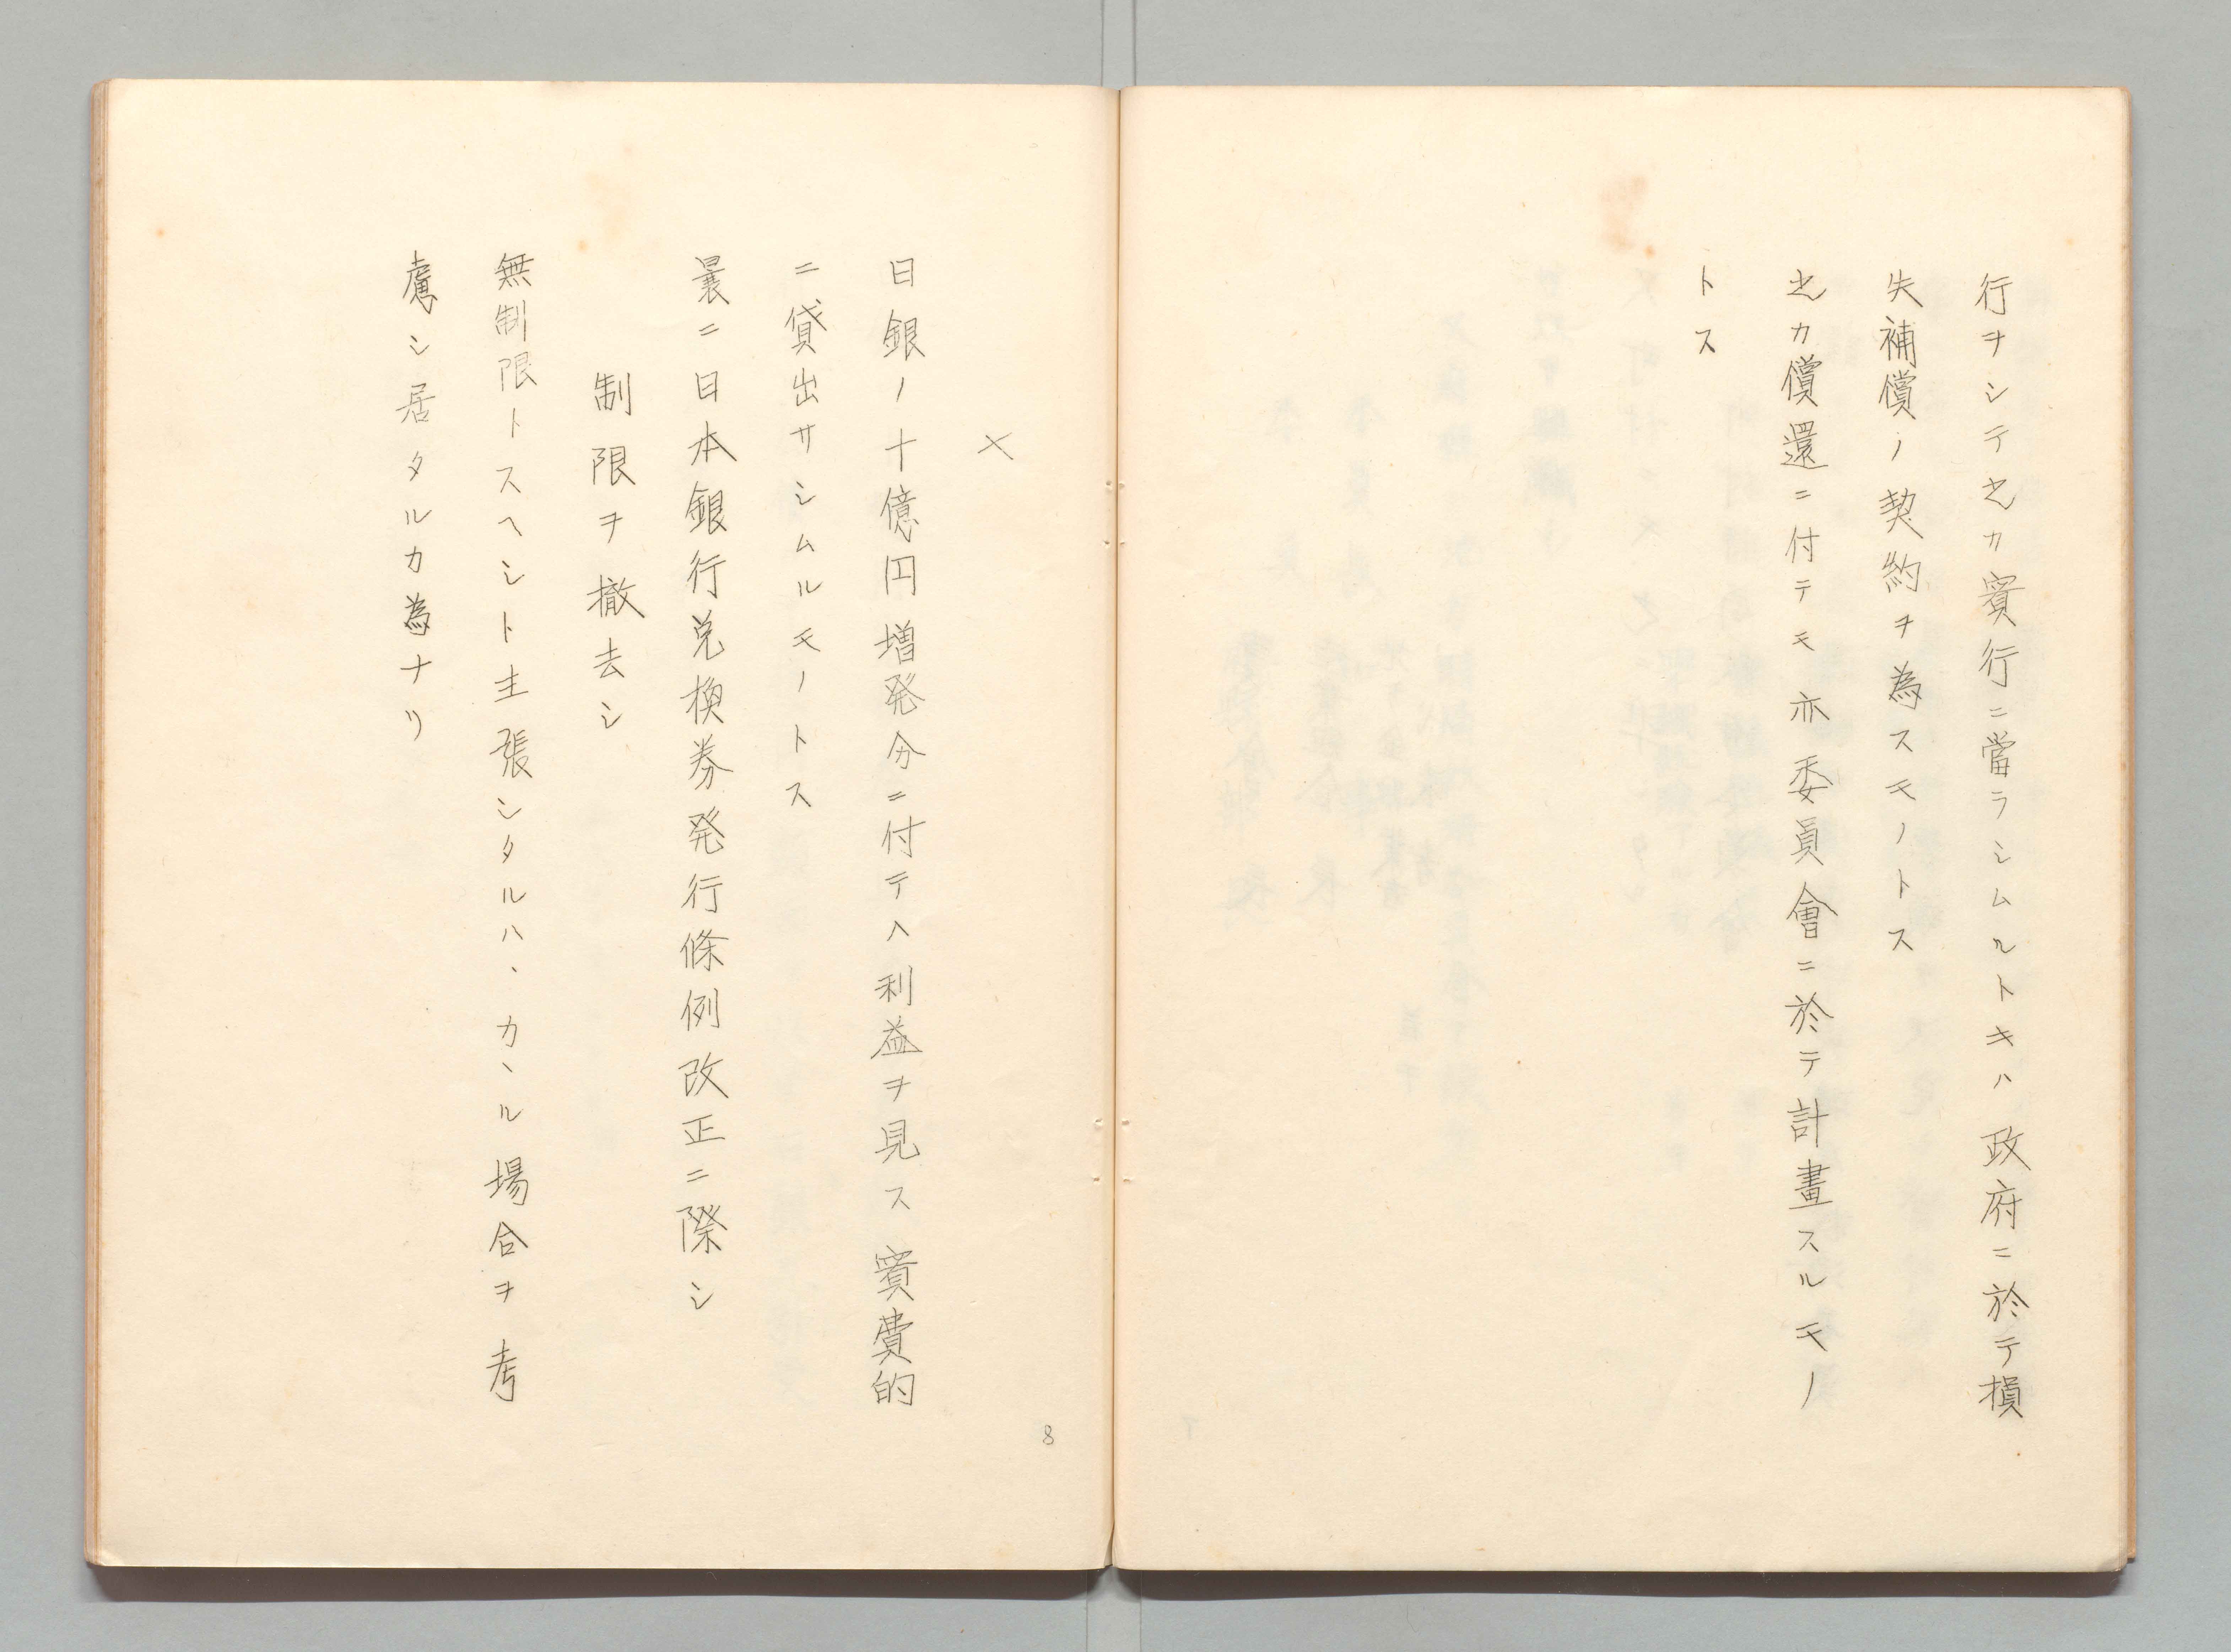 行ヲシテ之カ實行ニ當ラシムルトキハ政府ニ於テ損
失補償ノ契約ヲ為スモノトス
之カ償還ニ付テモ亦委員會ニ於テ計畫スルモノ
トス
×
日銀ノ十億円増発分ニ付テハ利益ヲ見ス實費的
ニ貸出サシムルモノトス
曩ニ日本銀行兌換券発行條例改正ニ際シ
制限ヲ撤去シ
無制限トスヘシト主張シタルハ、カヽル場合ヲ考
慮シ居タルカ為ナリ
8